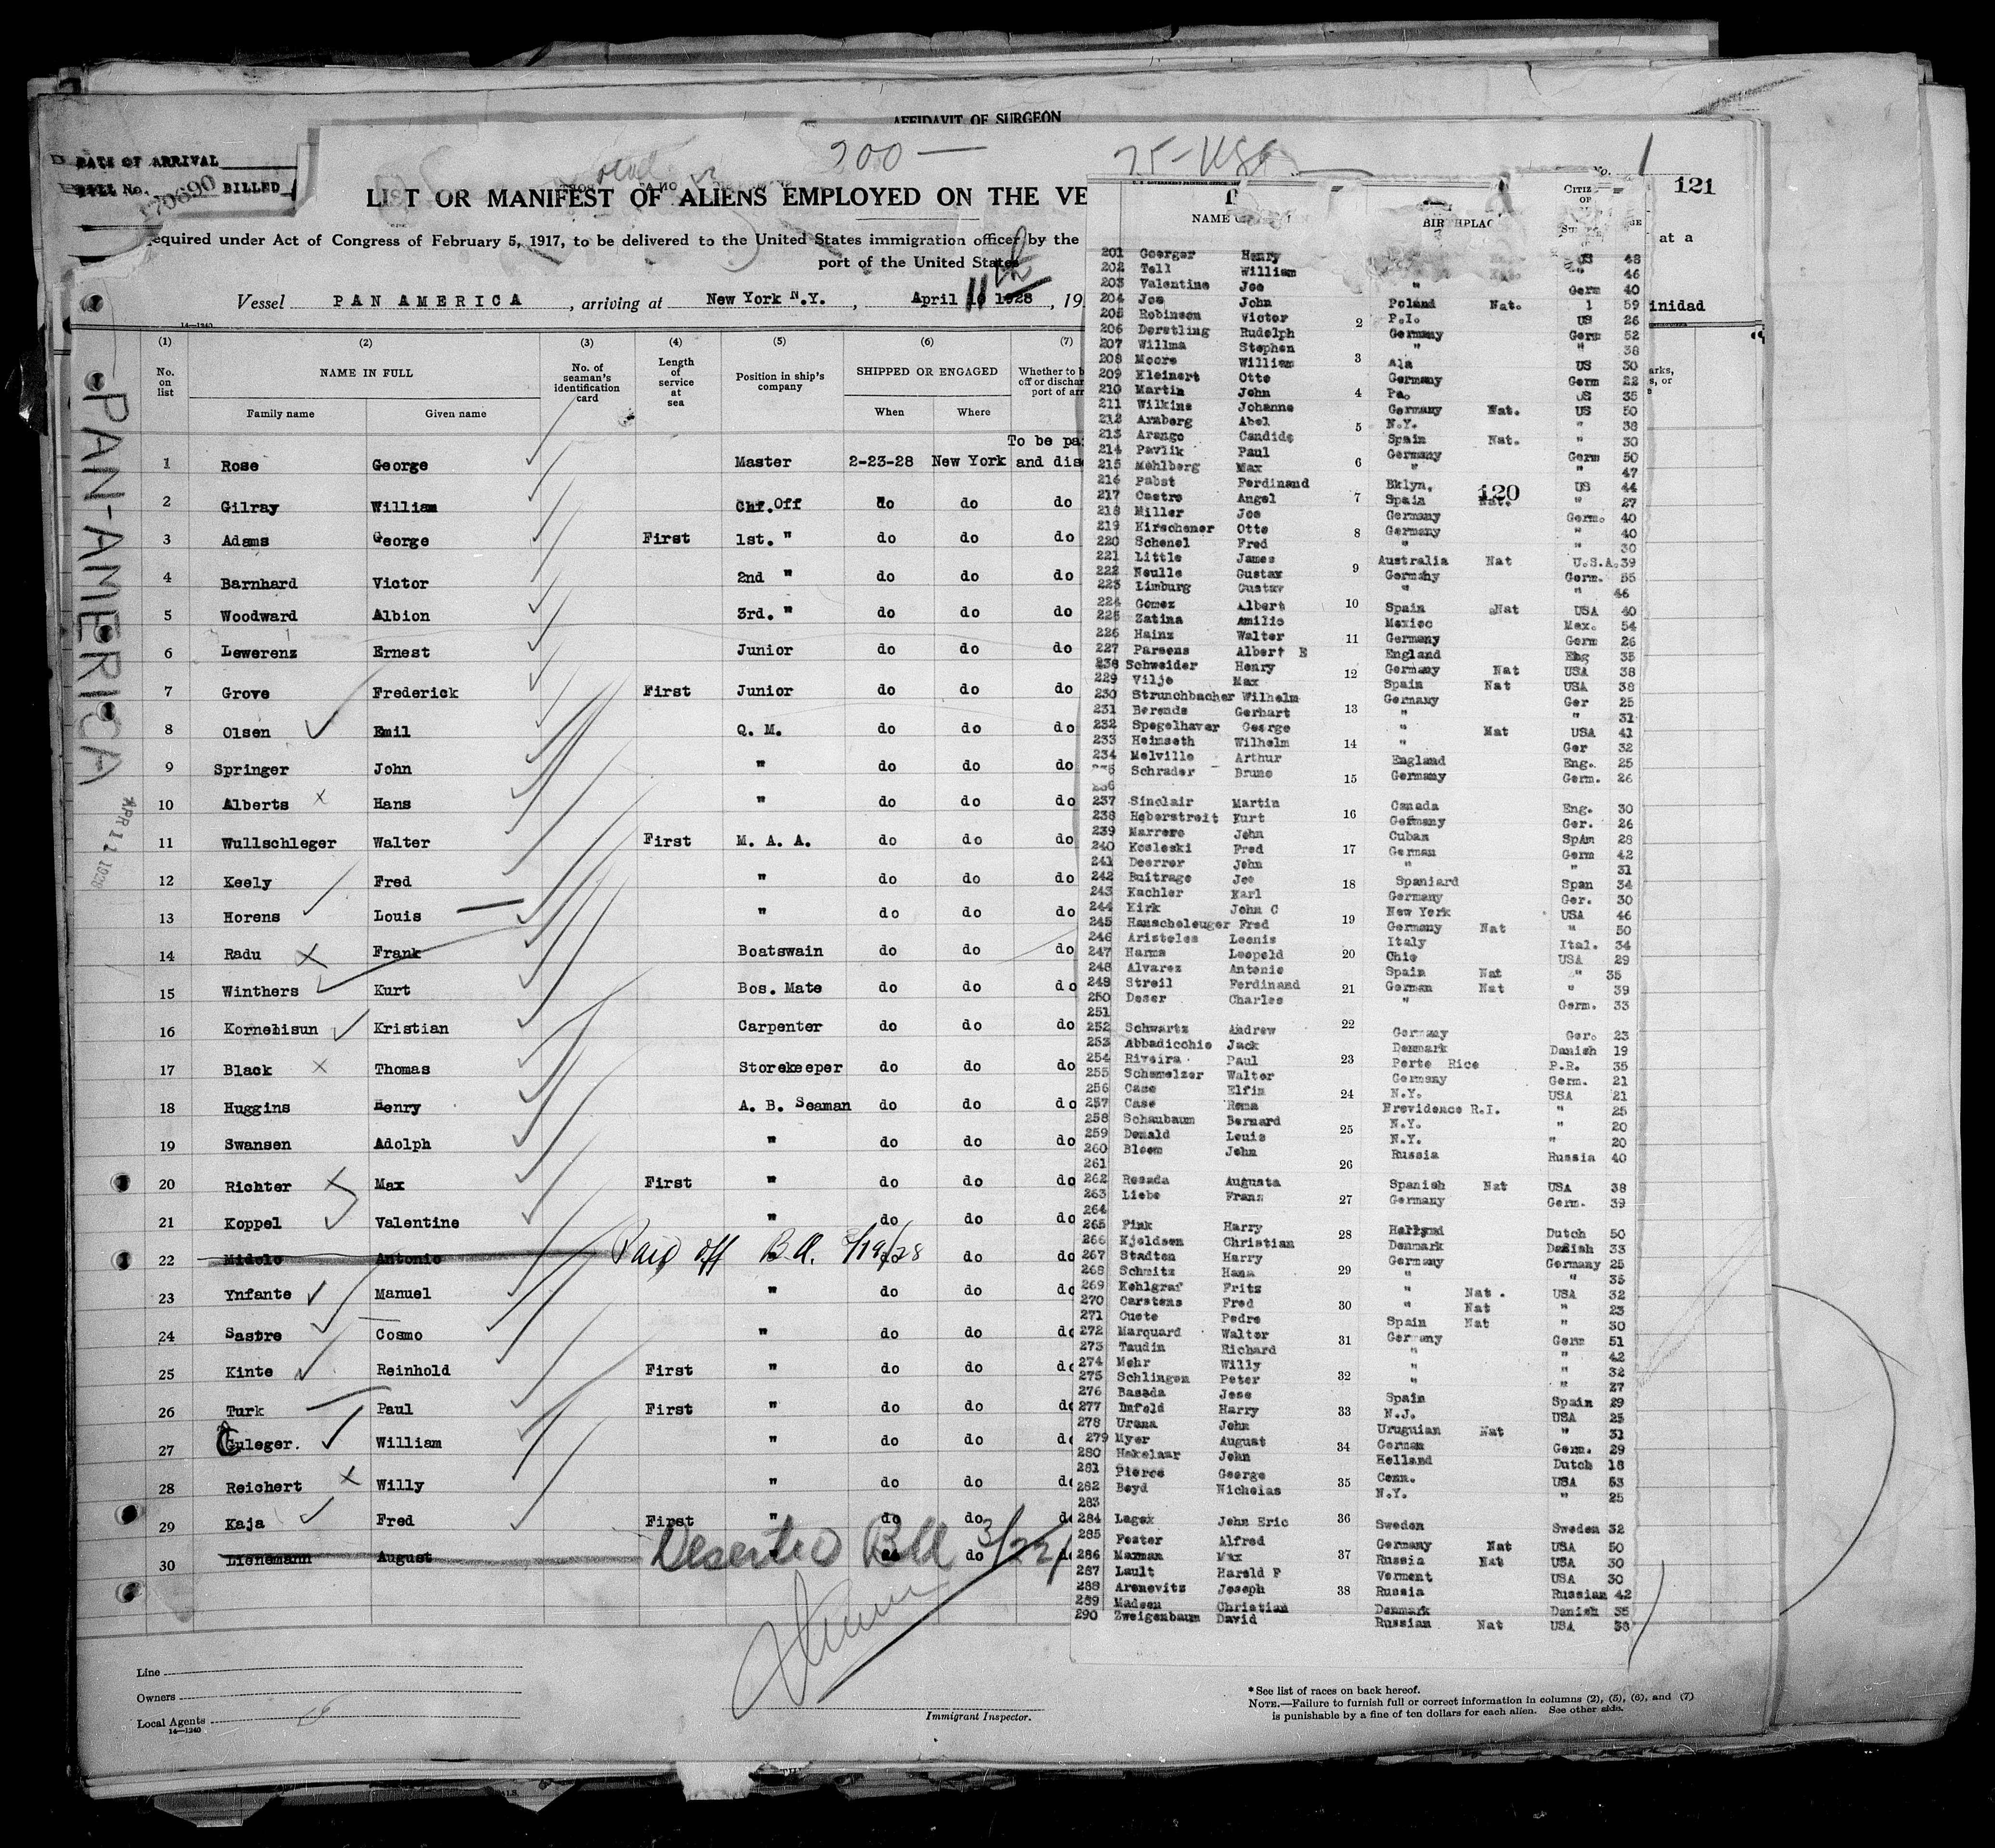 AFFIDAVIT OF SURGEON
DATE OF ARRIVAL
BILL No. 170690 BILLED
200 —
No. 1
121
LIST OR MANIFEST OF ALIENS EMPLOYED ON THE VE
required under Act of Congress of February 5, 1917, to be delivered to the United States immigration officer by the
at a
port of the United States
Vessel PAN AMERICA, arriving at New York N.Y., April 11 1928, 19
inidad
14—1240
PAN-AMERICA
APR 11 1928
(1) (2) (3) (4) (5) (6) (7)
No. on list
NAME IN FULL
Family name Given name
No. of seaman's identification card
Length of service at sea
Position in ship's company
SHIPPED OR ENGAGED
When Where
Whether to b
off or dischar
port of arr
To be pa
1 Rose George Master 2-23-28 New York and dis
2 Gilray William Chf. Off do do do
3 Adams George First 1st. " do do do
4 Barnhard Victor 2nd " do do do
5 Woodward Albion 3rd. " do do do
6 Lewerenz Ernest Junior do do do
7 Grove Frederick First Junior do do do
8 Olsen Emil Q. M. do do do
9 Springer John " do do do
10 Alberts Hans " do do do
11 Wullschleger Walter First M. A. A. do do do
12 Keely Fred " do do do
13 Horens Louis " do do do
14 Radu Frank Boatswain do do do
15 Winthers Kurt Bos. Mate do do do
16 Kornelisun Kristian Carpenter do do do
17 Black Thomas Storekeeper do do do
18 Huggins Henry A. B. Seaman do do do
19 Swansen Adolph " do do do
20 Richter Max First " do do do
21 Koppel Valentine " do do do
22 Midelo Antonio Paid off B.A. 3/19/28 do do
23 Ynfante Manuel " do do do
24 Sastre Cosmo " do do do
25 Kinte Reinhold First " do do do
26 Turk Paul First " do do do
27 Guleger. William " do do do
28 Reichert Willy " do do do
29 Kaja Fred First " do do do
30 Lienemann August Deserted BA 3/22/ do do
NAME BIRTHPLAC CITIZ
201 Goerger Henry US 48
202 Tell William " 46
203 Valentine Joe " Germ 40
204 Jos John Poland Nat. 1 59
205 Robinson Victor P.I. US 26
206 Derstling Rudolph Germany Germ 52
207 Willma Stephen " " 38
208 Moore William Ala US 30
209 Kleinert Otto Germany Germ 22
210 Martin John Pa. US 35
211 Wilkins Johanne Germany Nat. US 50
212 Arnberg Abel N.Y. " 38
213 Arango Candido Spain Nat. " 30
214 Pavlik Paul Germany Germ 50
215 Mehlberg Max " " 47
216 Pabst Ferdinand Bklyn. US 44
120
217 Castro Angel Spain Nat. " 27
218 Miller Joe Germany Germ. 40
219 Kirschener Otto Germany " 40
220 Schenel Fred " " 30
221 Little James Australia Nat U.S.A. 39
222 Neulle Gustax Germany Germ. 55
223 Limburg Gustav " " 46
224 Gomez Albert Spain Nat USA 40
225 Zatina Amilio Mexico Mex. 54
226 Hainz Walter Germany Germ 26
227 Parsens Albert E England Eng 35
238 Schweider Henry Germany Nat USA 38
229 Vilje Max Spain Nat USA 38
230 Strunchbacher Wilhelm Germany Ger 25
231 Berends Gerhart " " 31
232 Spegelhaver George " Nat USA 41
233 Heimseth Wilhelm " Ger 32
234 Melville Arthur England Eng. 25
Schrader Bruno Germany Germ. 26
236
237 Sinclair Martin Canada Eng. 30
238 Heberstreit Kurt Germany Ger. 26
239 Marrero John Cuban Spam 28
240 Kosleski Fred German Germ 42
241 Deerrer John " " 31
242 Buitrago Joe Spaniard Span 34
243 Kachler Karl Germany Ger. 30
244 Kirk John C New York USA 46
245 Hanscheleuger Fred Germany Nat " 50
246 Aristeles Leonis Italy Ital. 34
247 Harms Leopold Ohio USA 29
248 Alvarez Antonio Spain Nat " 35
249 Streil Ferdinand German Nat " 39
250 Deser Charles " Germ. 33
251
252 Schwartz Andrew Germany Ger. 23
253 Abbadicchio Jack Denmark Danish 19
254 Riveira Paul Porto Rico P.R. 35
255 Schemelzer Walter Germany Germ. 21
256 Case Elfin N.Y. USA 21
257 Case Rema Providence R.I. " 25
258 Schaubaum Bernard N.Y. " 20
259 Donald Louis N.Y. " 20
260 Bloom John Russia Russia 40
261
262 Rosada Augusta Spanish Nat USA 38
263 Liebe Franz Germany Germ. 39
264
265 Pink Harry Holland Dutch 50
266 Kjeldsen Christian Denmark Danish 33
267 Stadten Harry Germany Germany 25
268 Schmitz Hans " " 35
269 Kehlgraf Fritz " Nat. USA 32
270 Carstens Fred " Nat " 23
271 Cueto Pedro Spain Nat " 30
272 Marquard Walter Germany Germ 51
273 Taudin Richard " " 42
274 Mehr Willy " " 32
275 Schlingen Peter " " 27
276 Basada Jose Spain Spain 29
277 Imfeld Harry N.J. USA 25
278 Urana John Uruguian Nat " 31
279 Myer August German Germ. 29
280 Hakelaar John Holland Dutch 18
281 Pierce George Conn. USA 53
282 Boyd Nicholas N.Y. " 25
283
284 Lagex John Eric Sweden Sweden 32
285 Foster Alfred Germany Nat USA 50
286 Maxman Max Russia Nat USA 30
287 Lault Harold F Vermont USA 30
288 Aronovitz Joseph Russia Russian 42
289 Madsen Christian Denmark Danish 35
290 Zweigenbaum David Russian Nat USA 38
2
3
4
5
6
7
8
9
10
11
12
13
14
15
16
17
18
19
20
21
22
23
24
25
26
27
28
29
30
31
32
33
34
35
36
37
38
Line
Owners
Local Agents
14—1240
Immigrant Inspector.
* See list of races on back hereof.
NOTE.—Failure to furnish full or correct information in columns (2), (5), (6), and (7)
is punishable by a fine of ten dollars for each alien. See other side.